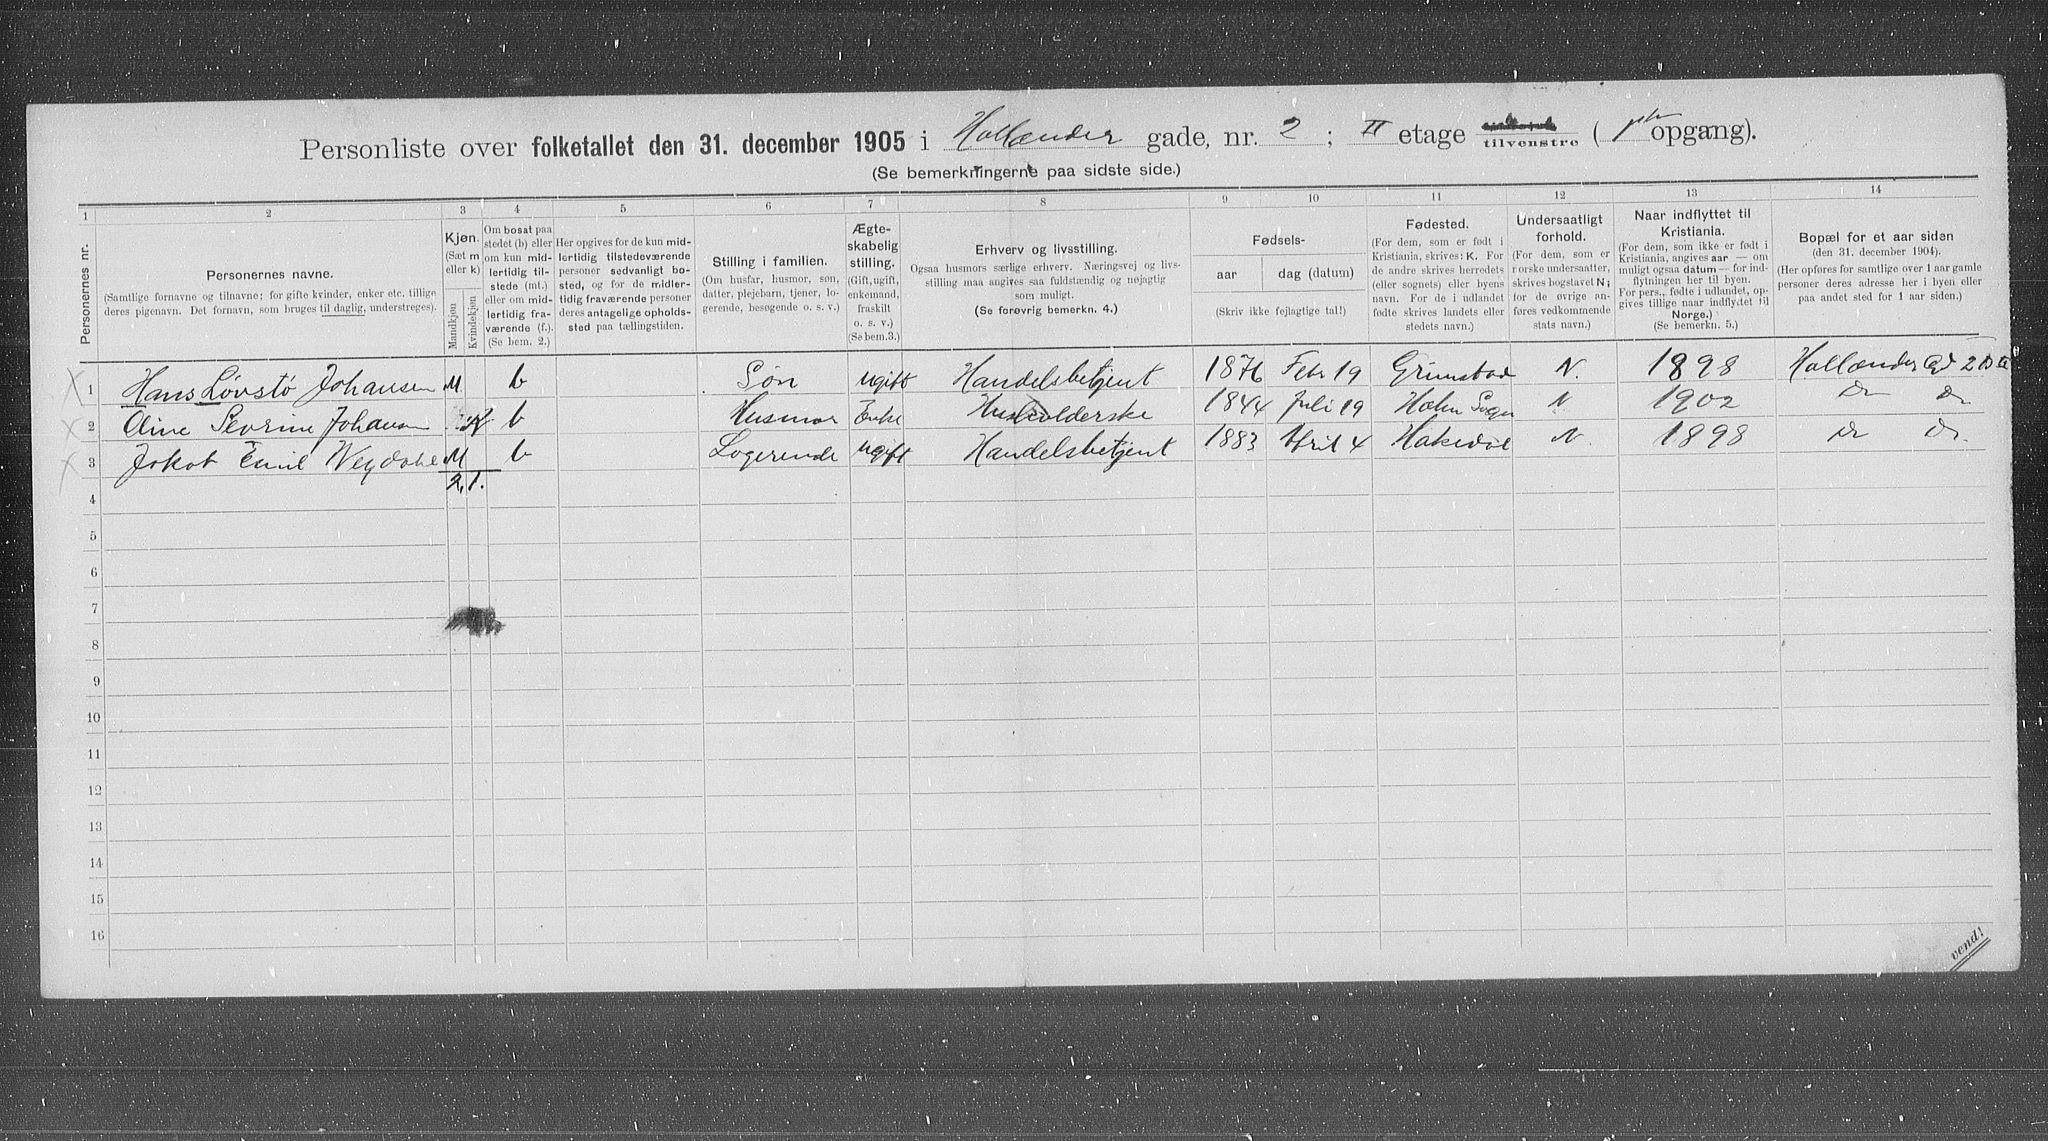 Personliste over folketallet den 31. december 1905 i Hollænder gade, nr. 2; II etage tilvenstre ( opgang).
(Se bemerkningerne paa sidste side.)
1 2 3 4 5 6 7 8 9 10 11 12 13 14
Personernes nr.
Personernes navne.
(Samtlige fornavne og tilnavne; for gifte kvinder, enker etc. tillige
deres pigenavn. Det fornavn, som bruges til daglig, understreges).
Kjøn.
(Sæt m
eller k)
Mandkjøn
Kvindekjøn
Om bosat paa
stedet (b) eller
om kun mid-
lertidig til-
stede (mt.)
eller om mid-
lertidig fra-
værende (f.).
(Se bem. 2.)
Her opgives for de kun mid-
lertidig tilstedeværende
personer sedvanligt bo-
sted, og for de midler-
tidig fraværende personer
deres antagelige opholds-
sted paa tællingstiden.
Stilling i familien.
(Om husfar, husmor, søn,
datter, plejebarn, tjener, lo-
gerende, besøgende o. s. v.)
Ægte-
skabelig
stilling.
(Gift, ugift,
enkemand,
fraskilt
o. s. v.)
(Se bem.3.)
Erhverv og livsstilling.
Ogsaa husmors særlige erhverv. Næringsvej og livs-
stilling maa angives saa fuldstændig og nøjagtig
som muligt.
(Se forøvrig bemerkn. 4.)
Fødsels-
aar dag (datum)
(Skriv ikke fejlagtige tal!)
Fødested.
(For dem, som er født i
Kristiania, skrives: K. For
de andre skrives herredets
(eller sognets) eller byens
navn. For de i udlandet
fødte skrives landets eller
stedets navn.)
Undersaatligt
forhold.
(For dem, som er
norske undersaatter,
skrives bogstavet N;
for de øvrige an-
føres vedkommende
stats navn.)
Naar indflyttet til
Kristiania.
(For dem, som ikke er født i
Kristiania, angives aar — om
muligt ogsaa datum — for ind-
flytningen her til byen.
For pers., fødte i udlandet, op-
gives tillige naar indflydtet til
Norge.)
(Se bemerkn. 5.)
Bopæl for et aar siden
(den 31. december 1904).
(Her opføres for samtlige over 1 aar gamle
personer deres adresse her i byen eller
paa andet sted for 1 aar siden.)
1 Hans Løvstø Johansen M b Søn ugift Handelsbetjent 1876 Febr 19 Grimstad N. 1898 Hollænder Gd 2
2 Oline Sevrine Johansen K b Husmor Enke Husholderske 1844 Juli 19 Sogn N 1902 Do Do
3 Jakob Emil Wegdahl M b Logerende ugift Handelsbetjent 1883 April 4 Hakedal N. 1898 Do Do.
2, 1.
4
5
6
7
8
9
10
11
12
13
14
15
16
vend!